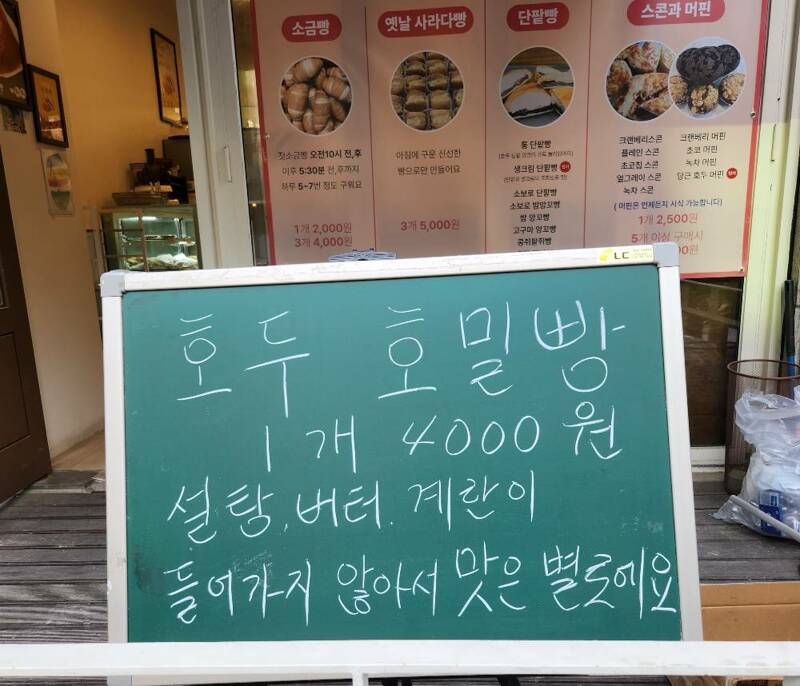 소금빵
옛날 사라다빵
단팥빵
스콘과 머핀
갓소금빵 오전10시 전,후
이후 5:30분 전,후까지
하루 5~7번 정도 구워요
1개 2,000원
3개 4,000원
아침에 구운 신선한
빵으로만 만들어요
3개 5,000원
통 단팥빵
생크림 단팥빵
소보로 단팥빵
소보로 밤앙꼬빵
밤 앙꼬빵
고구마 앙꼬빵
크랜베리스콘
플레인 스콘
초코칩 스콘
얼그레이 스콘
녹차 스콘
크랜베리 머핀
초코 머핀
녹차 머핀
당근 호두 머핀
( 머핀은 언제든지 시식 가능합니다)
1개 2,500원
5개 이상 구매시
00원
LC
호두 호밀빵
1개 4000원
설탕, 버터. 계란이
들어가지 않아서 맛은 별로에요